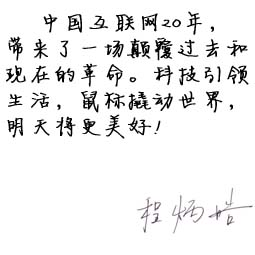 中国互联网20年，
带来了一场颠覆过去和
现在的革命。科技引领
生活，鼠标撬动世界，
明天将更美好！
程炳皓